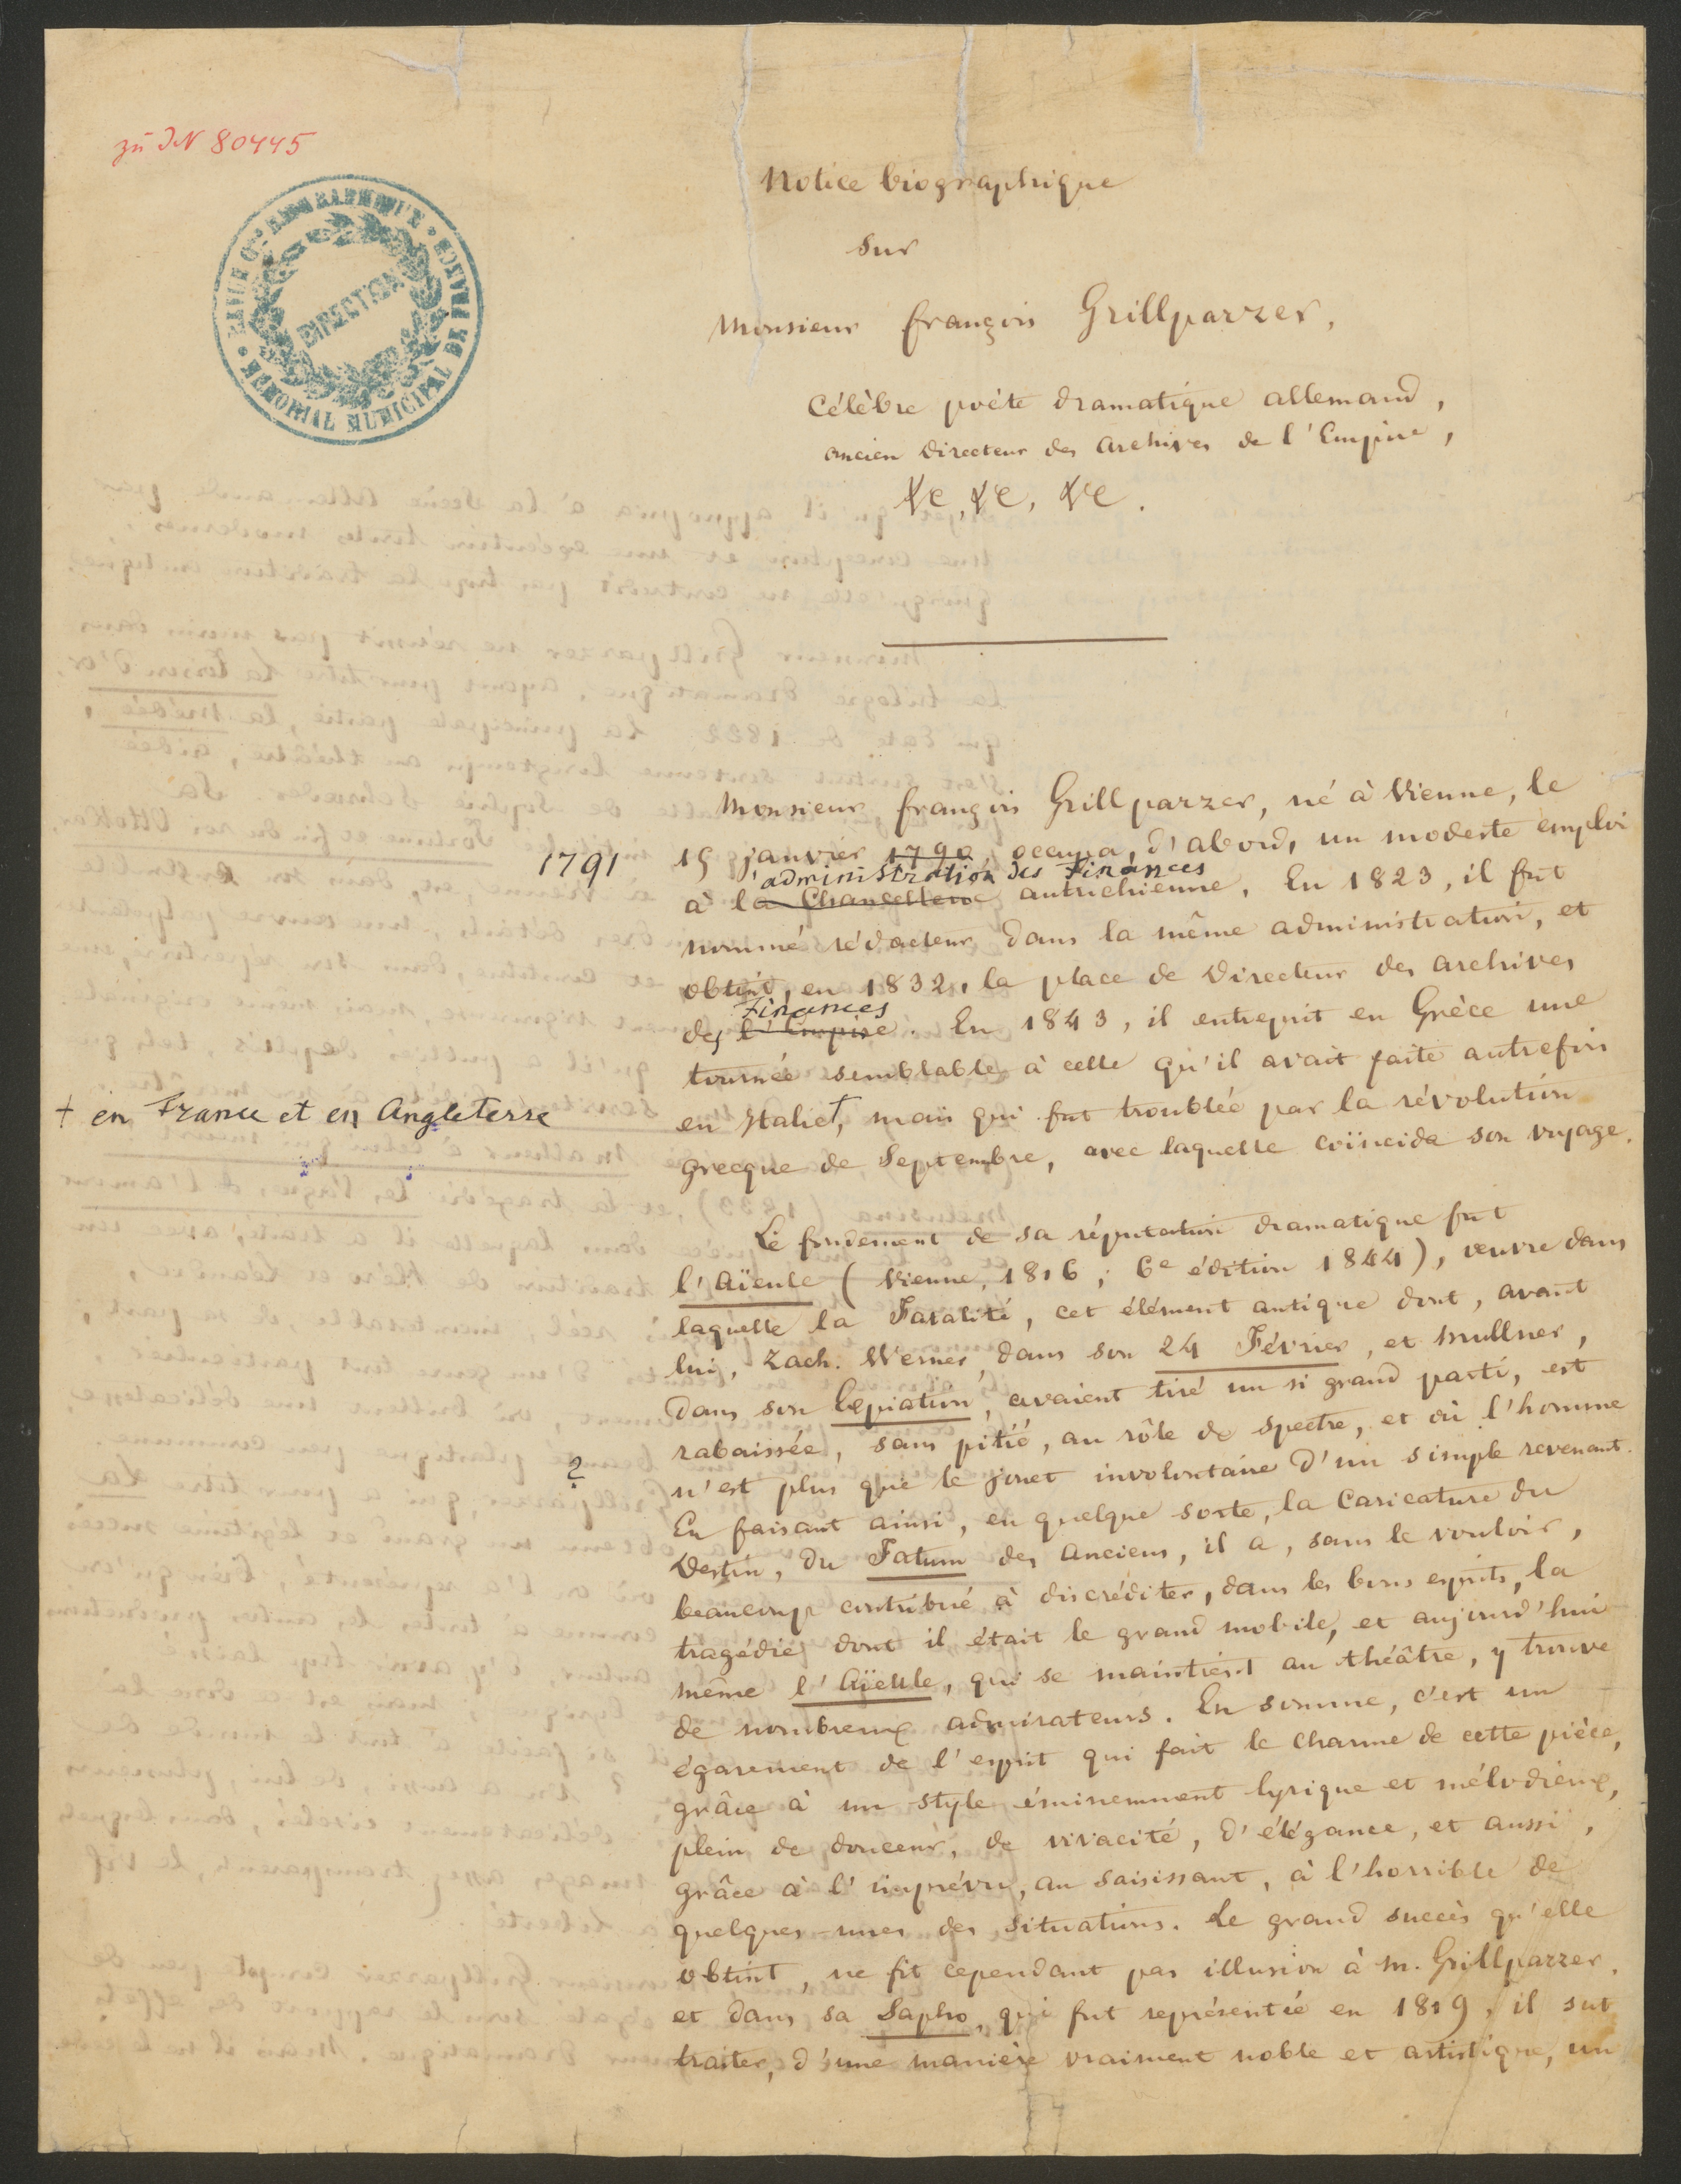 zu IN 80445
REVUE Gle BIOGRAPHIQUE
MÉMORIAL MUNICIPAL DE FRANCE
DIRECTION
Notice biographique
sur
Monsieur françois Grillparzer,
Célèbre poète dramatique allemand,
ancien Directeur des Archives de l'Empire,
&c, &c, &c.
Monsieur françois Grillparzer, né à Vienne, le
1791
15 janvier 1790, occupa, d'abord, un modeste emploi
l'administration des Finances
à la Chancellerie autrichienne. En 1823, il fut
nommé rédacteur dans la même administration, et
obtint, en 1832, la place de Directeur des archives
Finances
des l'Empire. En 1843, il entreprit en Grèce une
tournée semblable à celle qu'il avait faite autrefois
† en France et en Angleterre
en Italie†, mais qui fut troublée par la révolution
grecque de Septembre, avec laquelle coïncida son voyage.
Le fondement de sa réputation dramatique fut
l'Aïeule (Vienne, 1816; 6e édition 1844), œuvre dans
laquelle la Fatalité, cet élément antique dont, avant
lui, Zach. Werner, dans son 24 Février, et Mullner,
dans son Expiation, avaient tiré un si grand parti, est
rabaissée, sans pitié, au rôle de spectre, et où l'homme
?
n'est plus que le jouet involontaire d'un simple revenant.
En faisant ainsi, en quelque sorte, la Caricature du
Destin, du Fatum des Anciens, il a, sans le vouloir,
beaucoup contribué à discréditer, dans les bons esprits, la
tragédie dont il était le grand mobile, et aujourd'hui
même l'Aïeule, qui se maintient au théâtre, y trouve
de nombreux admirateurs. En somme, c'est un
égarement de l'esprit qui fait le charme de cette pièce,
grâce à un style éminemment lyrique et mélodieux,
plein de douceur, de vivacité, d'élégance, et aussi,
grâce à l'imprévu, au saisissant, à l'horrible de
quelques-unes des situations. Le grand succès qu'elle
obtint, ne fit cependant pas illusion à M. Grillparzer,
et dans sa Sapho, qui fut représentée en 1819, il sut
traiter, d'une manière vraiment noble et artistique, un